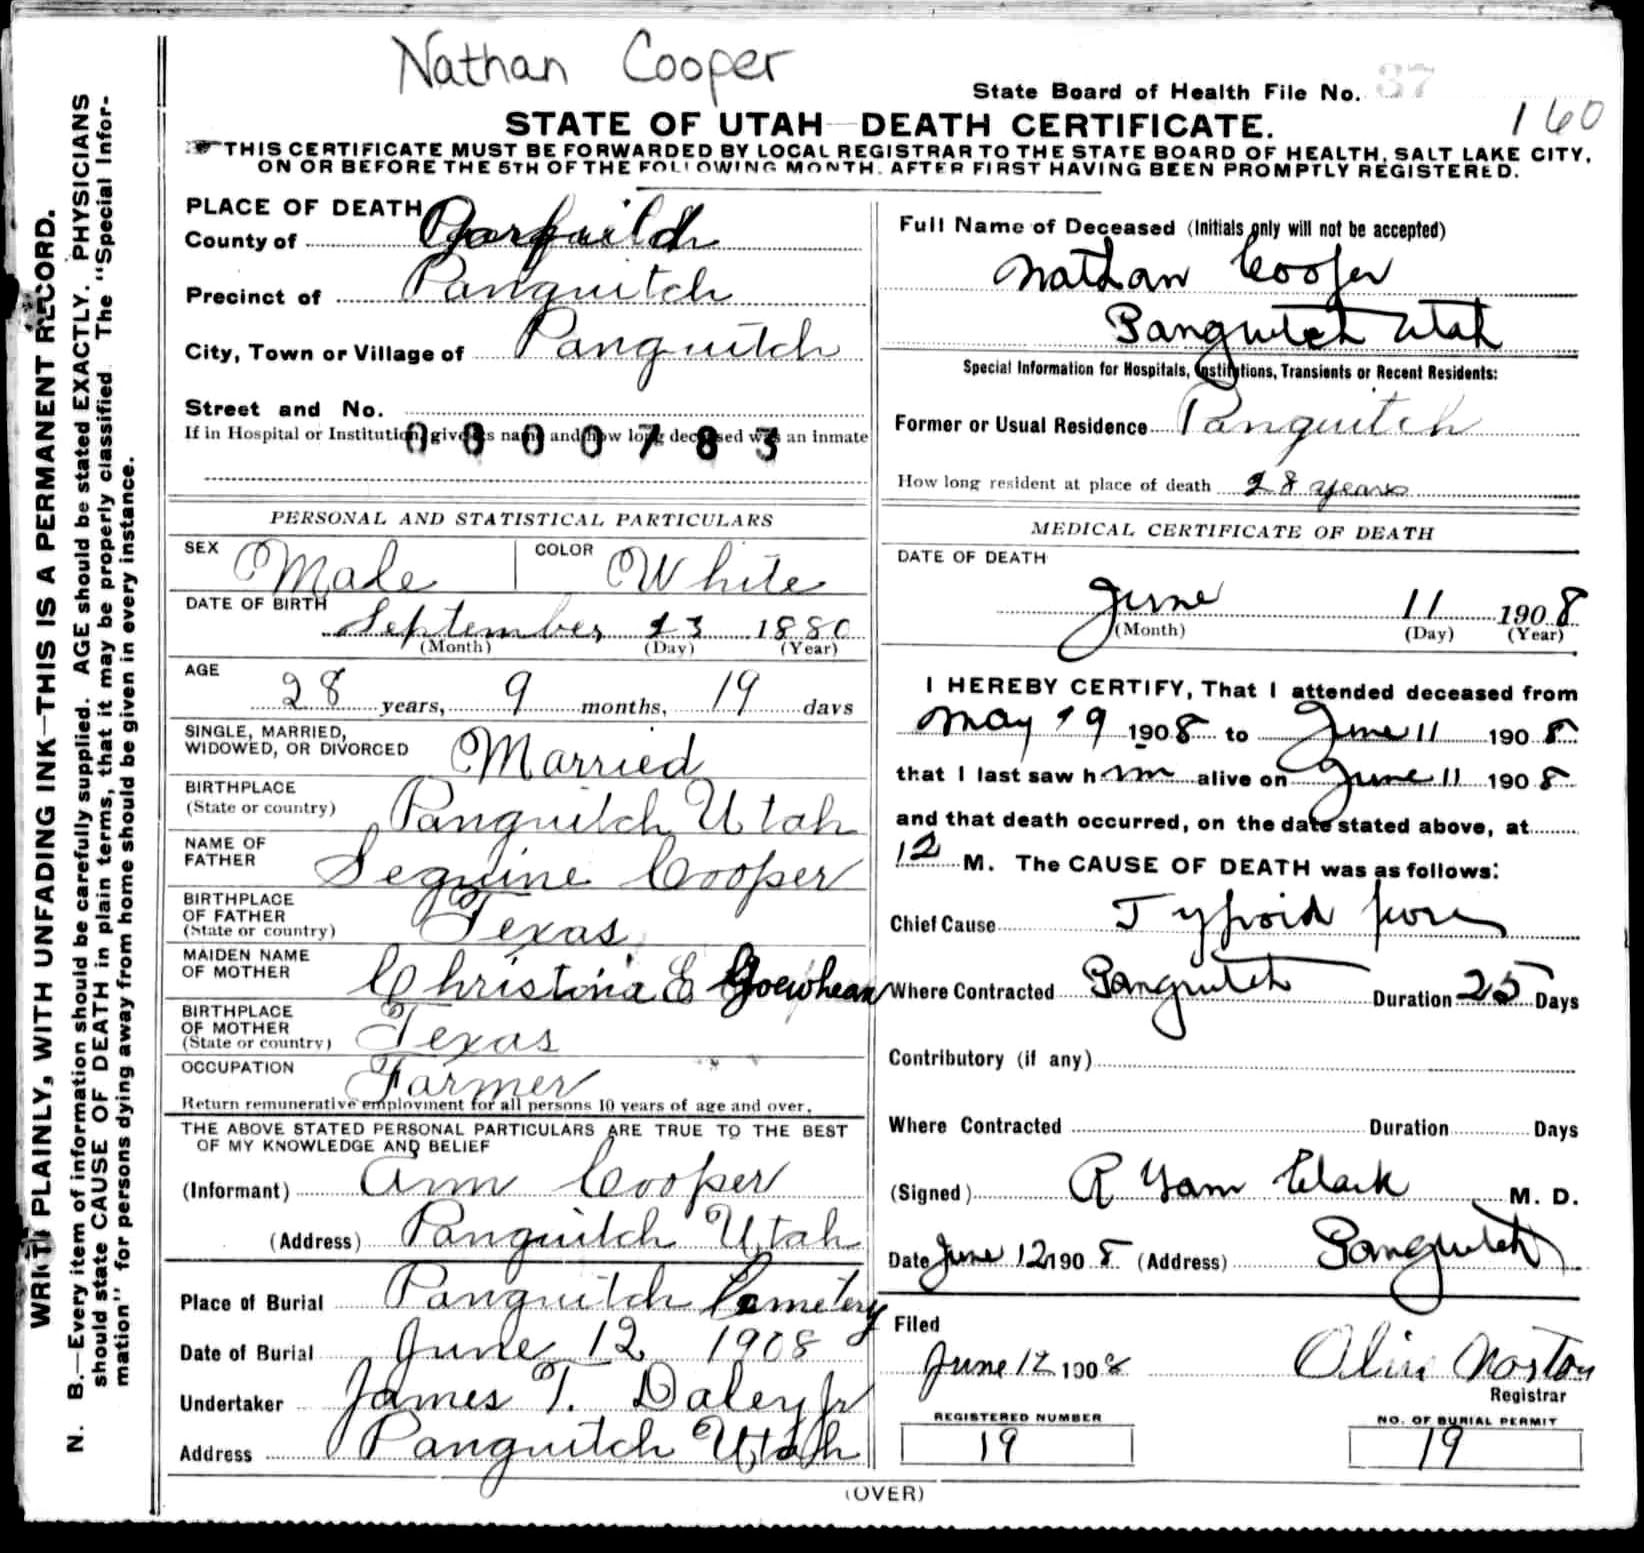 Nathan Cooper
State Board of Health File No. 37
160
STATE OF UTAH—DEATH CERTIFICATE.
THIS CERTIFICATE MUST BE FORWARDED BY LOCAL REGISTRAR TO THE STATE BOARD OF HEALTH, SALT LAKE CITY,
ON OR BEFORE THE 5TH OF THE FOLLOWING MONTH. AFTER FIRST HAVING BEEN PROMPTLY REGISTERED.
WRITE PLAINLY, WITH UNFADING INK—THIS IS A PERMANENT RECORD.
N. B.—Every item of information should be carefully supplied. AGE should be stated EXACTLY. PHYSICIANS
should state CAUSE OF DEATH in plain terms, that it may be properly classified The "Special Infor-
mation" for persons dying away from home should be given in every instance.
PLACE OF DEATH
County of
Precinct of Panguitch
City, Town or Village of Panguitch
Street and No.
If in Hospital or Institution, give its name and how long deceased was an inmate
0000783
PERSONAL AND STATISTICAL PARTICULARS
SEX Male COLOR White
DATE OF BIRTH
September 23 1880
(Month) (Day) (Year)
AGE
28 years, 9 months, 19 days
SINGLE, MARRIED,
WIDOWED, OR DIVORCED Married
BIRTHPLACE
(State or country) Panguitch Utah
NAME OF
FATHER Seguine Cooper
BIRTHPLACE
OF FATHER
(State or country) Texas
MAIDEN NAME
OF MOTHER Christina E
BIRTHPLACE
OF MOTHER
(State or country) Texas
OCCUPATION
Farmer
Return remunerative employment for all persons 10 years of age and over.
THE ABOVE STATED PERSONAL PARTICULARS ARE TRUE TO THE BEST
OF MY KNOWLEDGE AND BELIEF
(Informant) Ann Cooper
(Address) Panguitch Utah
Place of Burial Panguitch Cemetery
Date of Burial June 12 1908
Undertaker James T. Daley Jr
Address Panguitch Utah
Full Name of Deceased (Initials only will not be accepted)
Nathan Cooper
Panguitch Utah
Special Information for Hospitals, Institutions, Transients or Recent Residents:
Former or Usual Residence Panguitch
How long resident at place of death 28 years
MEDICAL CERTIFICATE OF DEATH
DATE OF DEATH
June 11 1908
(Month) (Day) (Year)
I HEREBY CERTIFY, That I attended deceased from
May 19 1908 to June 11 1908
that I last saw him alive on June 11 1908
and that death occurred, on the date stated above, at
12 M. The CAUSE OF DEATH was as follows:
Chief Cause Typhoid
Where Contracted Panguitch Duration 25 Days
Contributory (if any)
Where Contracted Duration Days
(Signed) R Clark M. D.
Date June 12 1908 (Address) Panguitch
Filed
June 12 1908 Norton
Registrar
REGISTERED NUMBER
19
NO. OF BURIAL PERMIT
19
(OVER)